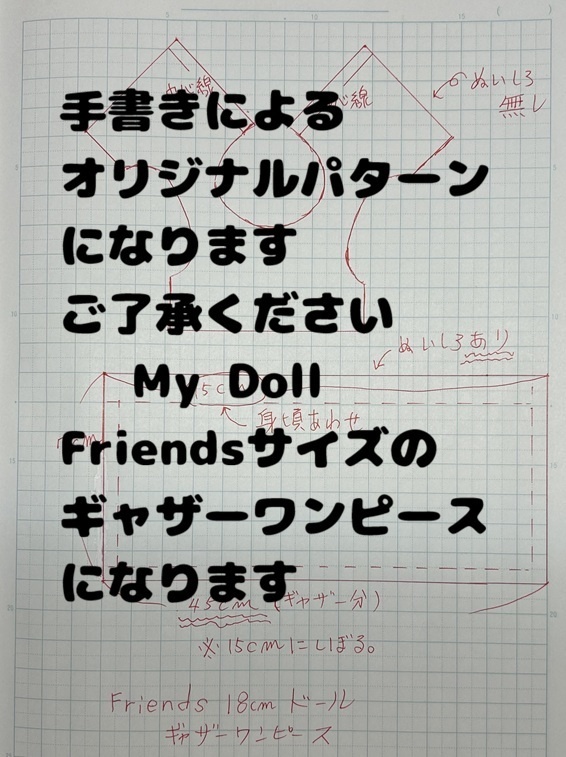 ぬいしろ
無し
手書きによる
オリジナルパターン
になります
ご了承ください
ぬいしろあり
My Doll
身頃あわせ
Friendsサイズの
ギャザーワンピース
になります
45cm (ギャザー分)
※15cmにしぼる。
Friends 18cmドール
ギャザーワンピース